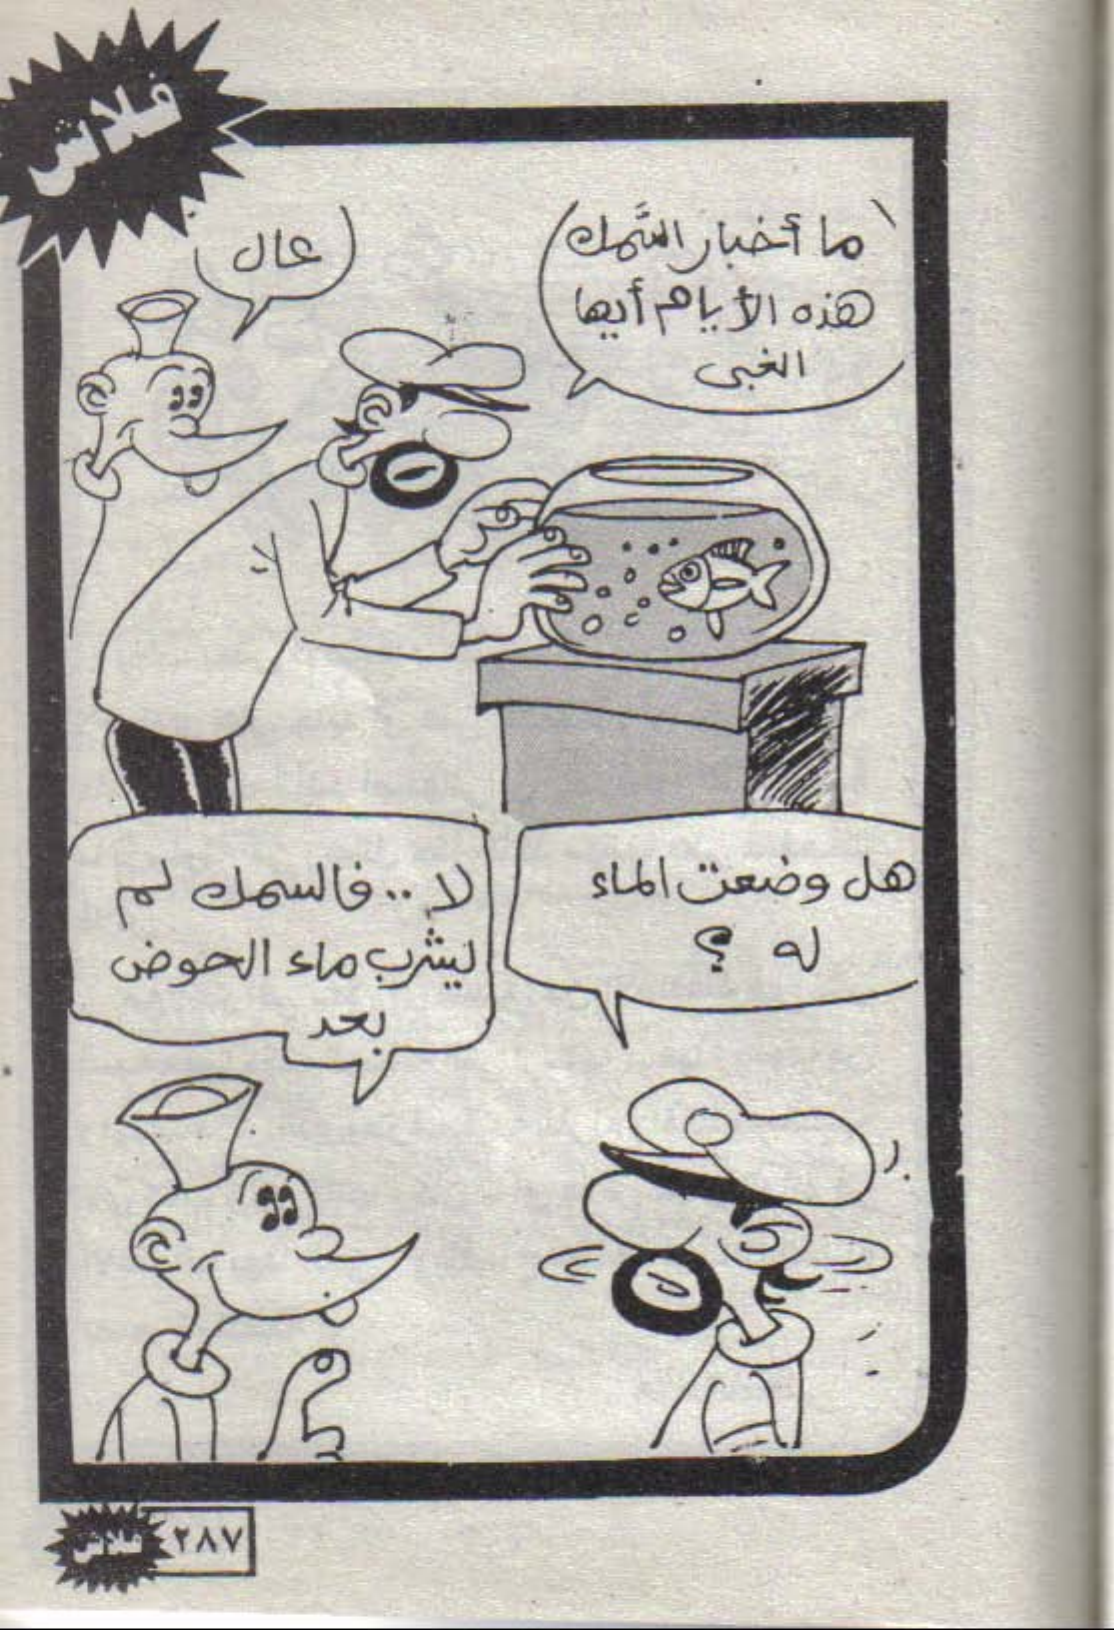 فلاش
ما أخبار السَّمك
هذه الأيام أيها
الغبى
عال
هل وضعت الماء
له ؟
لا .. فالسمك لم
يشرب ماء الحوض
بعد
فلاش
٢٨٧